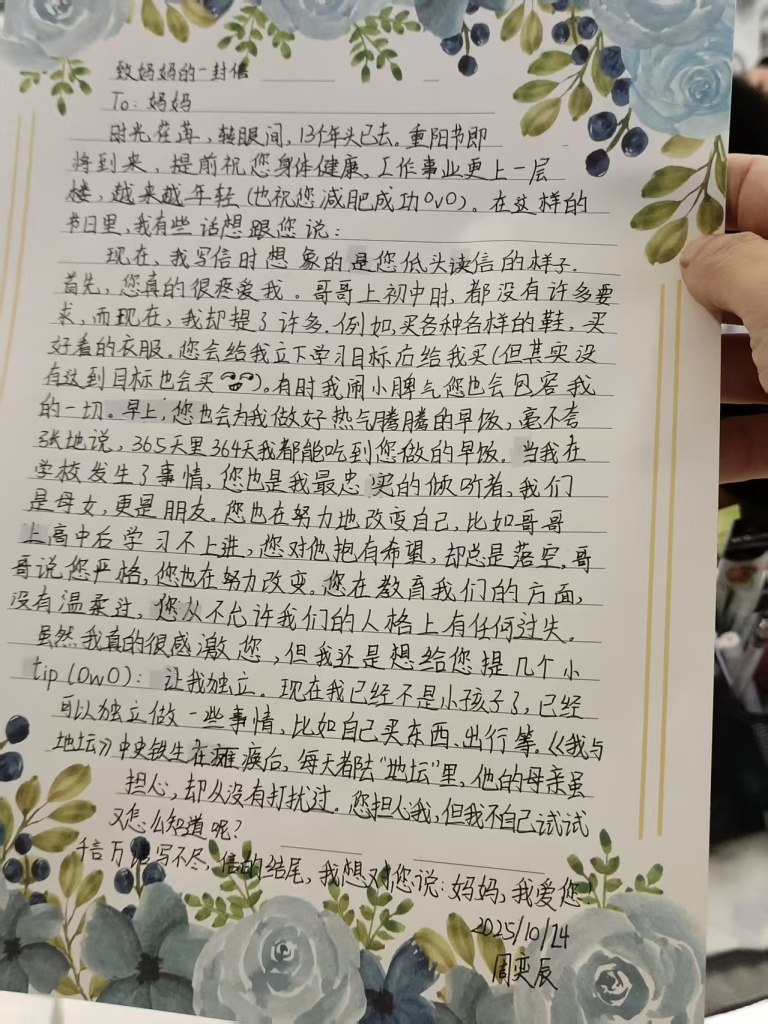 致妈妈的一封信
To: 妈妈
时光荏苒，转眼间，13个年头已去。重阳节即
将到来，提前祝您身体健康，工作事业更上一层
楼，越来越年轻(也祝您减肥成功OvO)。在这样的
节日里，我有些话想跟您说：
现在，我写信时想象的是您低头读信的样子.
首先，您真的很疼爱我。哥哥上初中时，都没有许多要
求，而现在，我却提了许多.例如，买各种各样的鞋，买
好看的衣服。您会给我立下学习目标后给我买(但其实没
有达到目标也会买)。有时我闹小脾气您也会包容我
的一切。早上，您也会为我做好热气腾腾的早饭，毫不夸
张地说，365天里364天我都能吃到您做的早饭.当我在
学校发生了事情，您也是我最忠实的倾听者，我们
是母女，更是朋友。您也在努力地改变自己，比如哥哥
上高中后学习不上进，您对他抱有希望，却总是落空.哥
哥说您严格，您也在努力改变。您在教育我们的方面，
没有温柔过，您从不允许我们的人格上有任何过失。
虽然我真的很感激您，但我还是想给您提几个小
tip(OwO)：让我独立。现在我已经不是小孩子了，已经
可以独立做一些事情，比如自己买东西、出行等.《我与
地坛》中史铁生在瘫痪后，每天都去“地坛”里，他的母亲虽
担心，却从没有打扰过。您担心我，但我不自己试试
又怎么知道呢？
千言万语写不尽，信的结尾，我想对您说：妈妈，我爱您！
2025/10/24
周奕辰